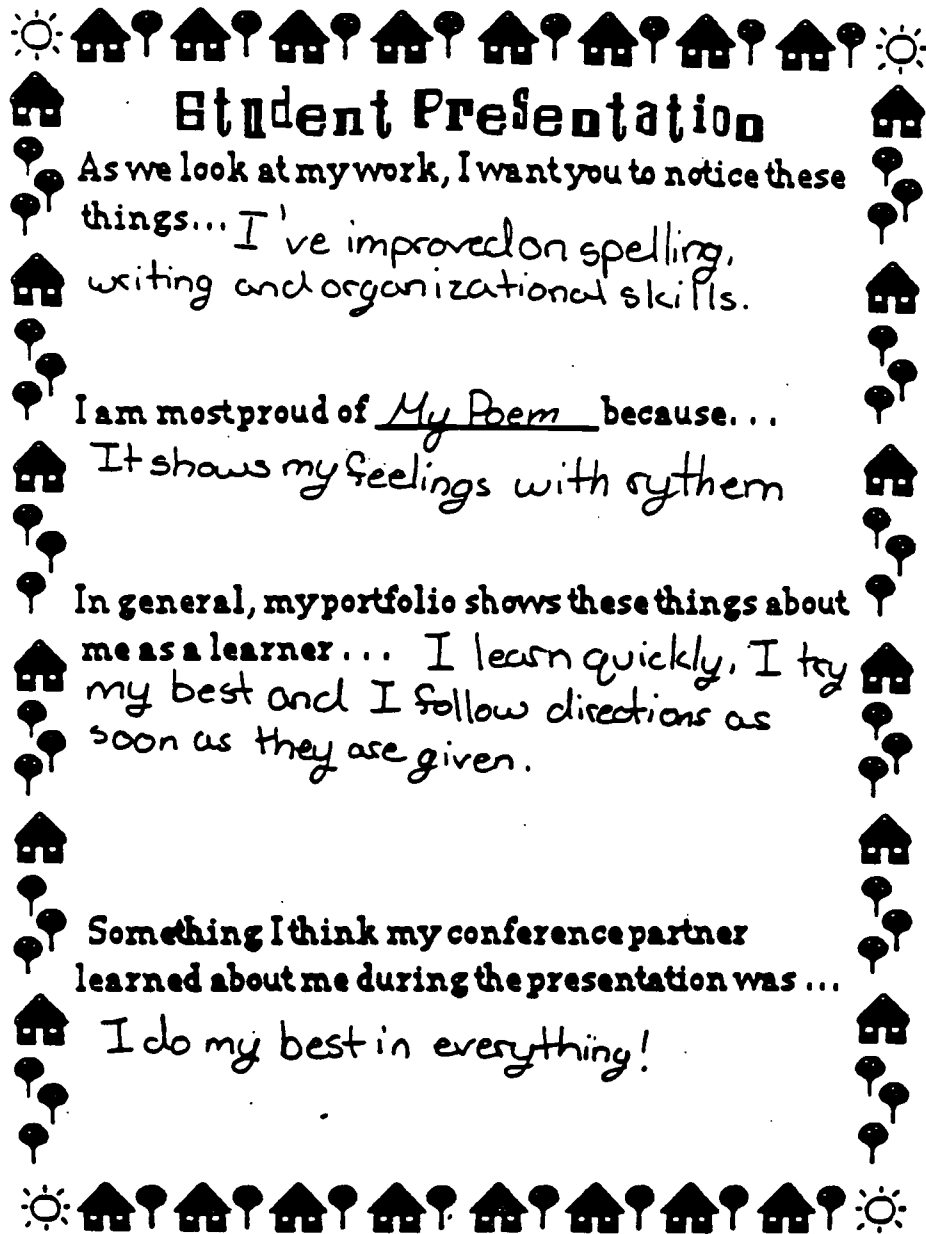 Student Presentation
As we look at my work, I want you to notice these
things... I've improved on spelling,
writing and organizational skills.
I am most proud of My Poem because...
It shows my feelings with rythem
In general, my portfolio shows these things about
me as a learner... I learn quickly, I try
my best and I follow directions as
soon as they are given.
Something I think my conference partner
learned about me during the presentation was ...
I do my best in everything!